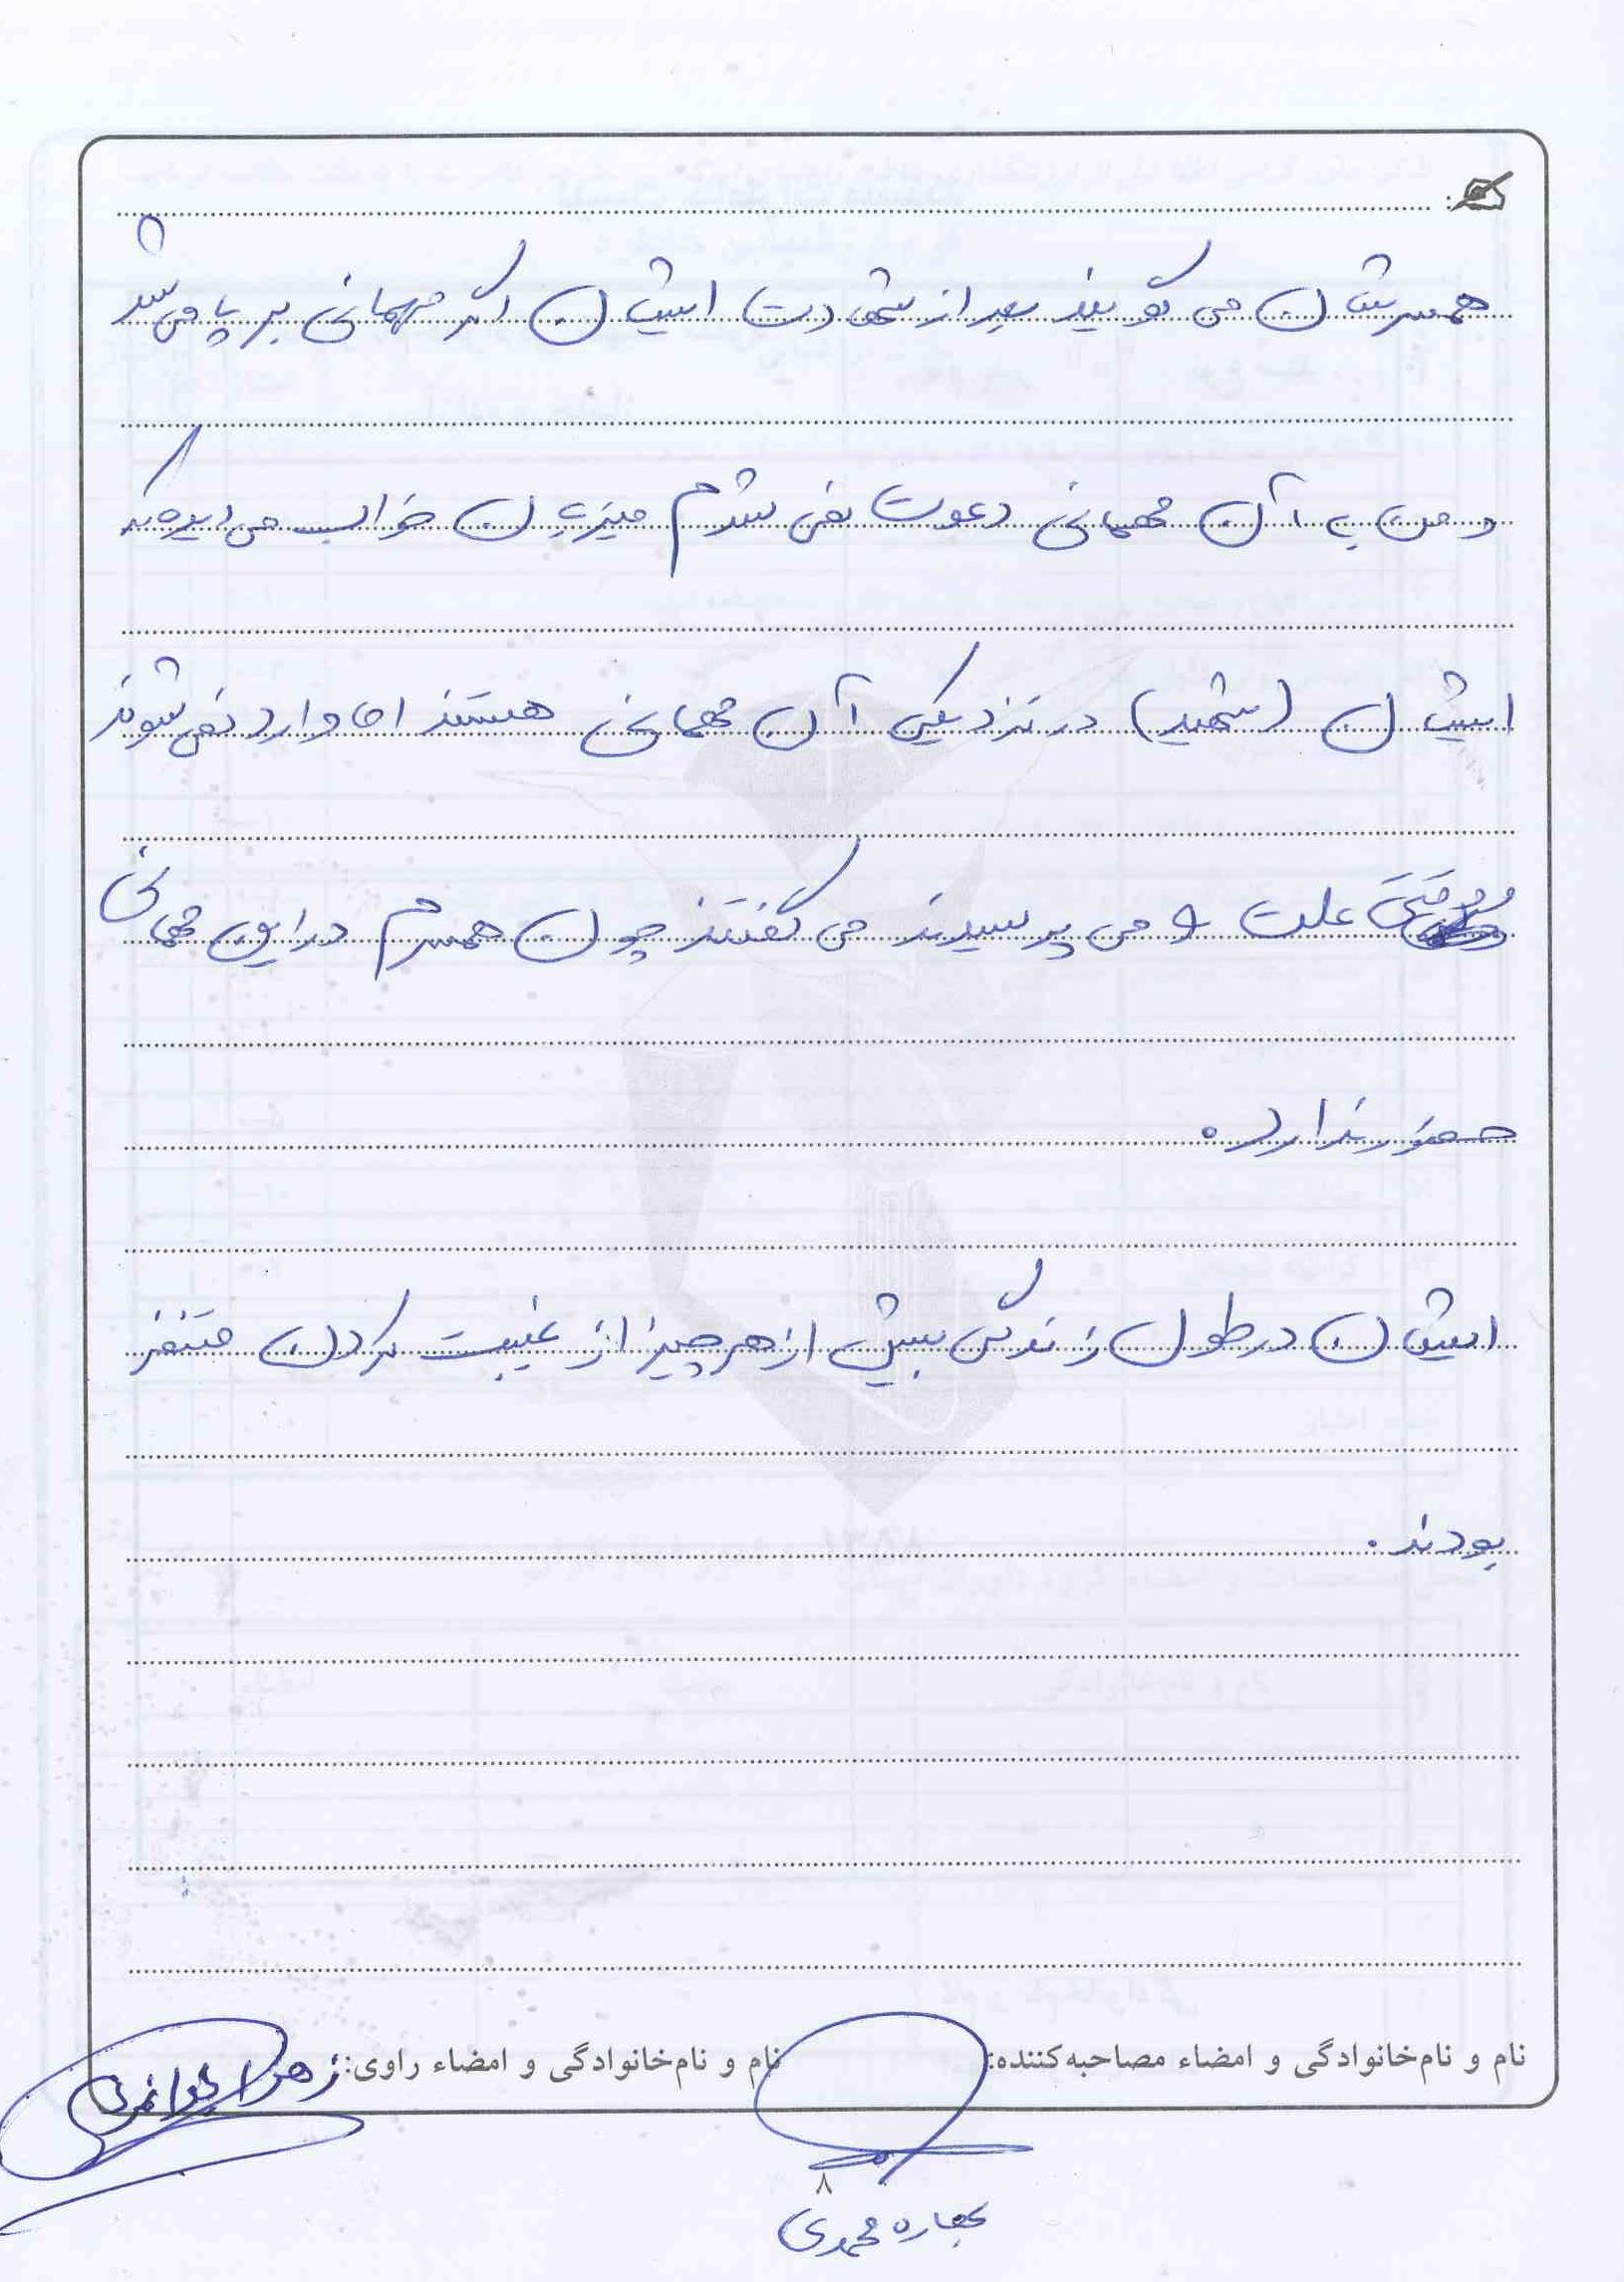 همسرشان می گویند بعد از شهادت ایشان اگر مهمانی برپا می شد
و من به آن مهمانی دعوت نمی شدم میزبان خواب می دیده که
ایشان (شهید) در نزدیکی آن مهمانی هستند اما وارد نمی شوند
وقتی علت و می پرسیدند می گفتند چون همسرم در این مهمانی
حضور ندارد.
ایشان در طول زندگی بیش از هر چیز از غیبت کردن متنفر
بودند.
نام و نام‌خانوادگی و امضاء مصاحبه‌کننده:
نام و نام‌خانوادگی و امضاء راوی: زهرا
۸
بهاره محمدی